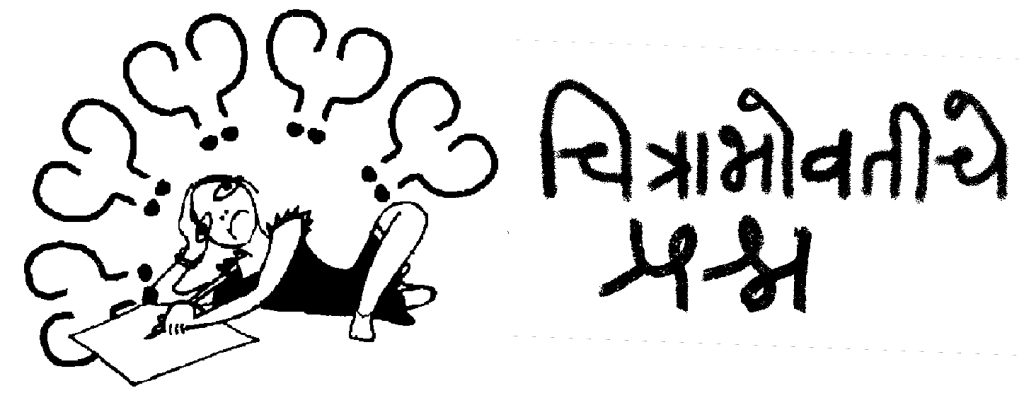 चित्राभोवतीचे
प्रश्न